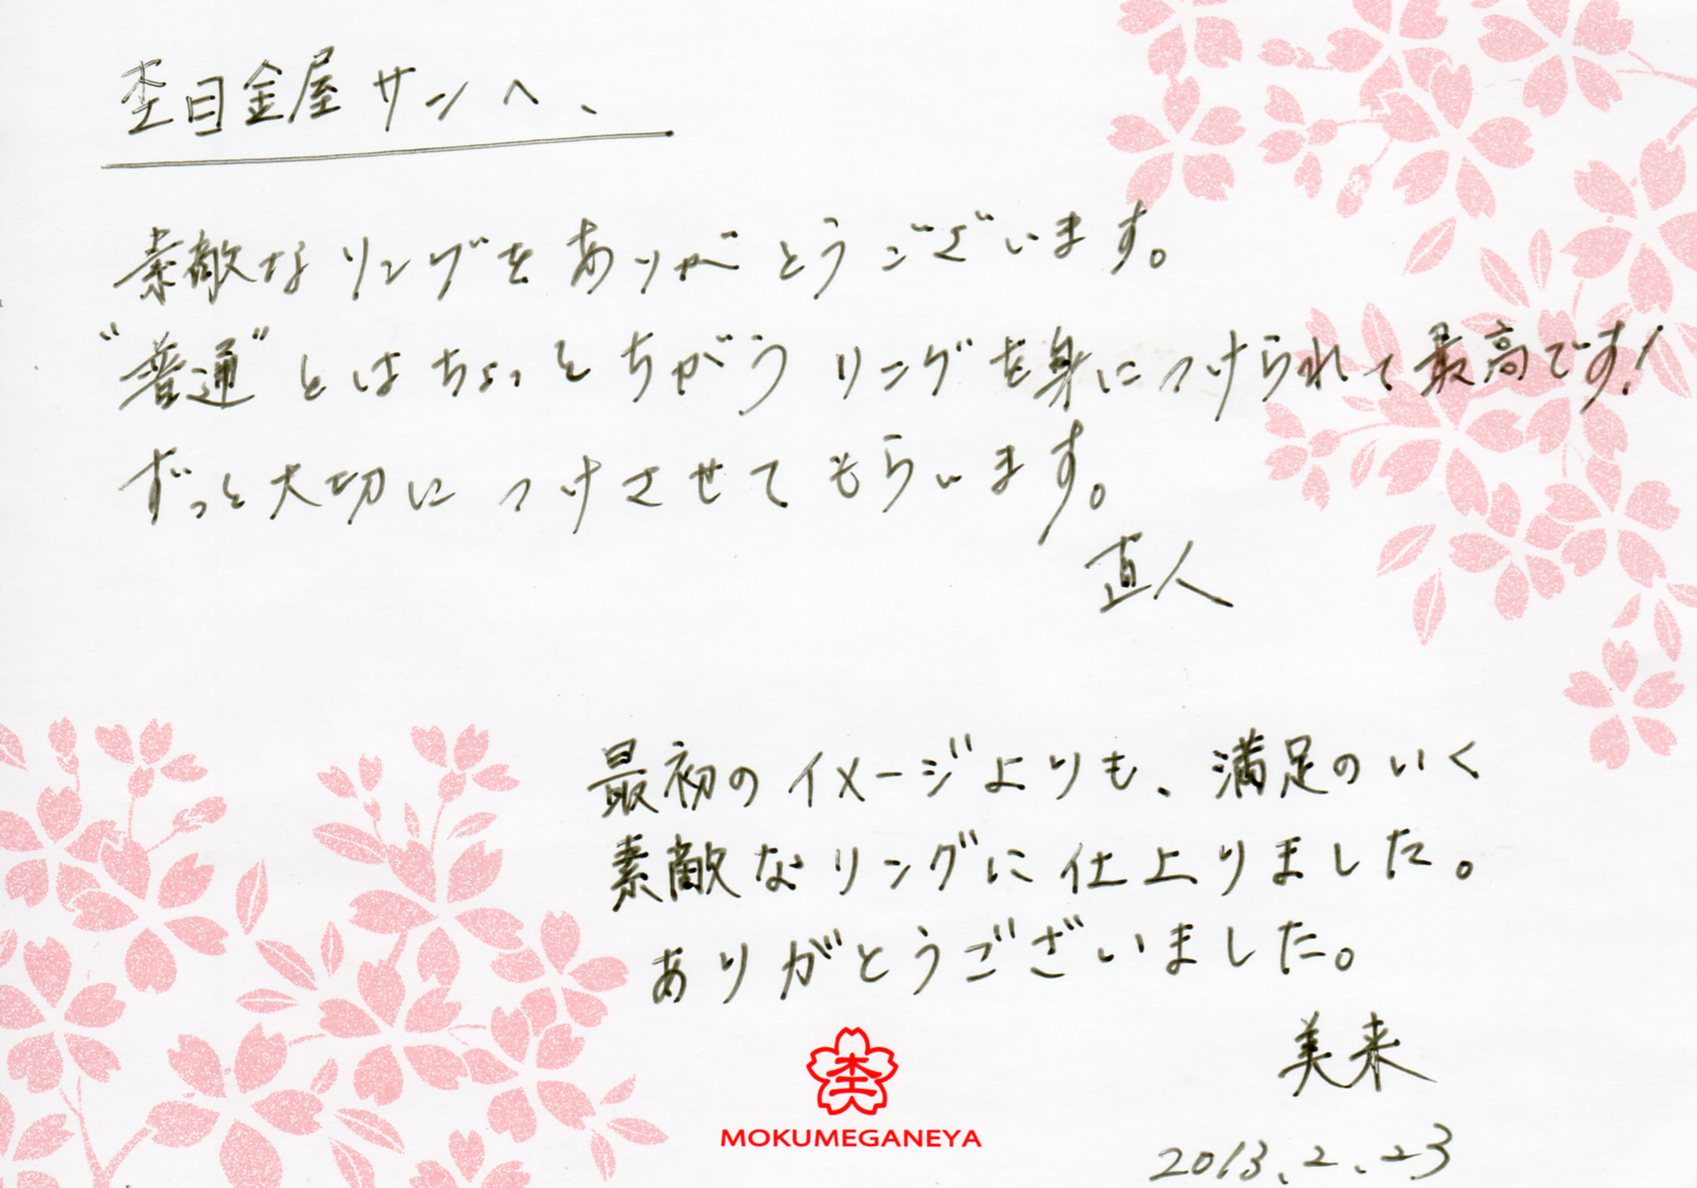 杢目金屋サンへ、
素敵なリングをありがとうございます。
"普通"とはちょっとちがうリングを身につけられて最高です!
ずっと大切につけさせてもらいます。
直人
最初のイメージよりも、満足のいく
素敵なリングに仕上りました。
ありがとうございました。
美来
杢
MOKUMEGANEYA
2013.2.23